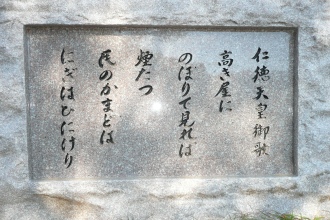 仁徳天皇御歌
高き屋に
のぼりて見れば
煙たつ
民のかまどは
にぎはひにけり